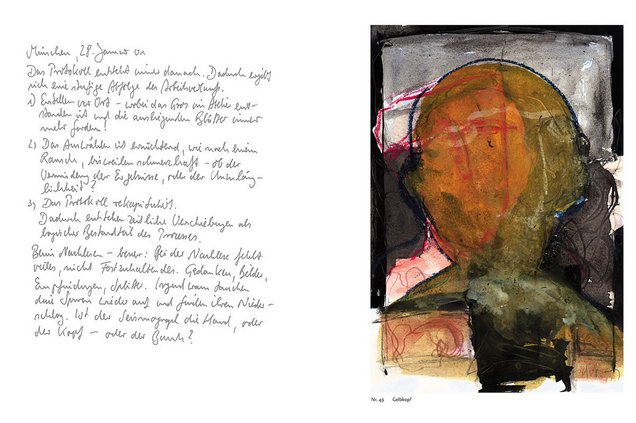 München, 28. Januar 01
Das Protokoll entsteht immer danach. Dadurch ergibt
sich eine stufige Abfolge des Arbeitsvorgangs.
1) Erstellen vor Ort – wobei das Gros im Atelier ent-
standen ist und die ausliegenden Blätter immer
mehr fordern!
2) Das Auswählen ist ernüchternd, wie nach einem
Rausch, bisweilen schmerzhaft – ob der
Verminderung der Ergebnisse, oder der Unzuläng-
lichkeit?
3) Das Protokoll rekapituliert.
Dadurch entstehen zeitliche Verschiebungen als
logischer Bestandteil des Prozesses.
Beim Nachlesen – besser: Bei der Nachlese fehlt
vieles, nicht Festzuhaltendes. Gedanken, Bilder,
Empfindungen, Splitter. Irgendwann tauchen
diese Spuren wieder auf und finden ihren Nieder-
schlag. Ist der Seismograph die Hand, oder
der Kopf – oder der Bauch?
Nr. 49 Gelbkopf